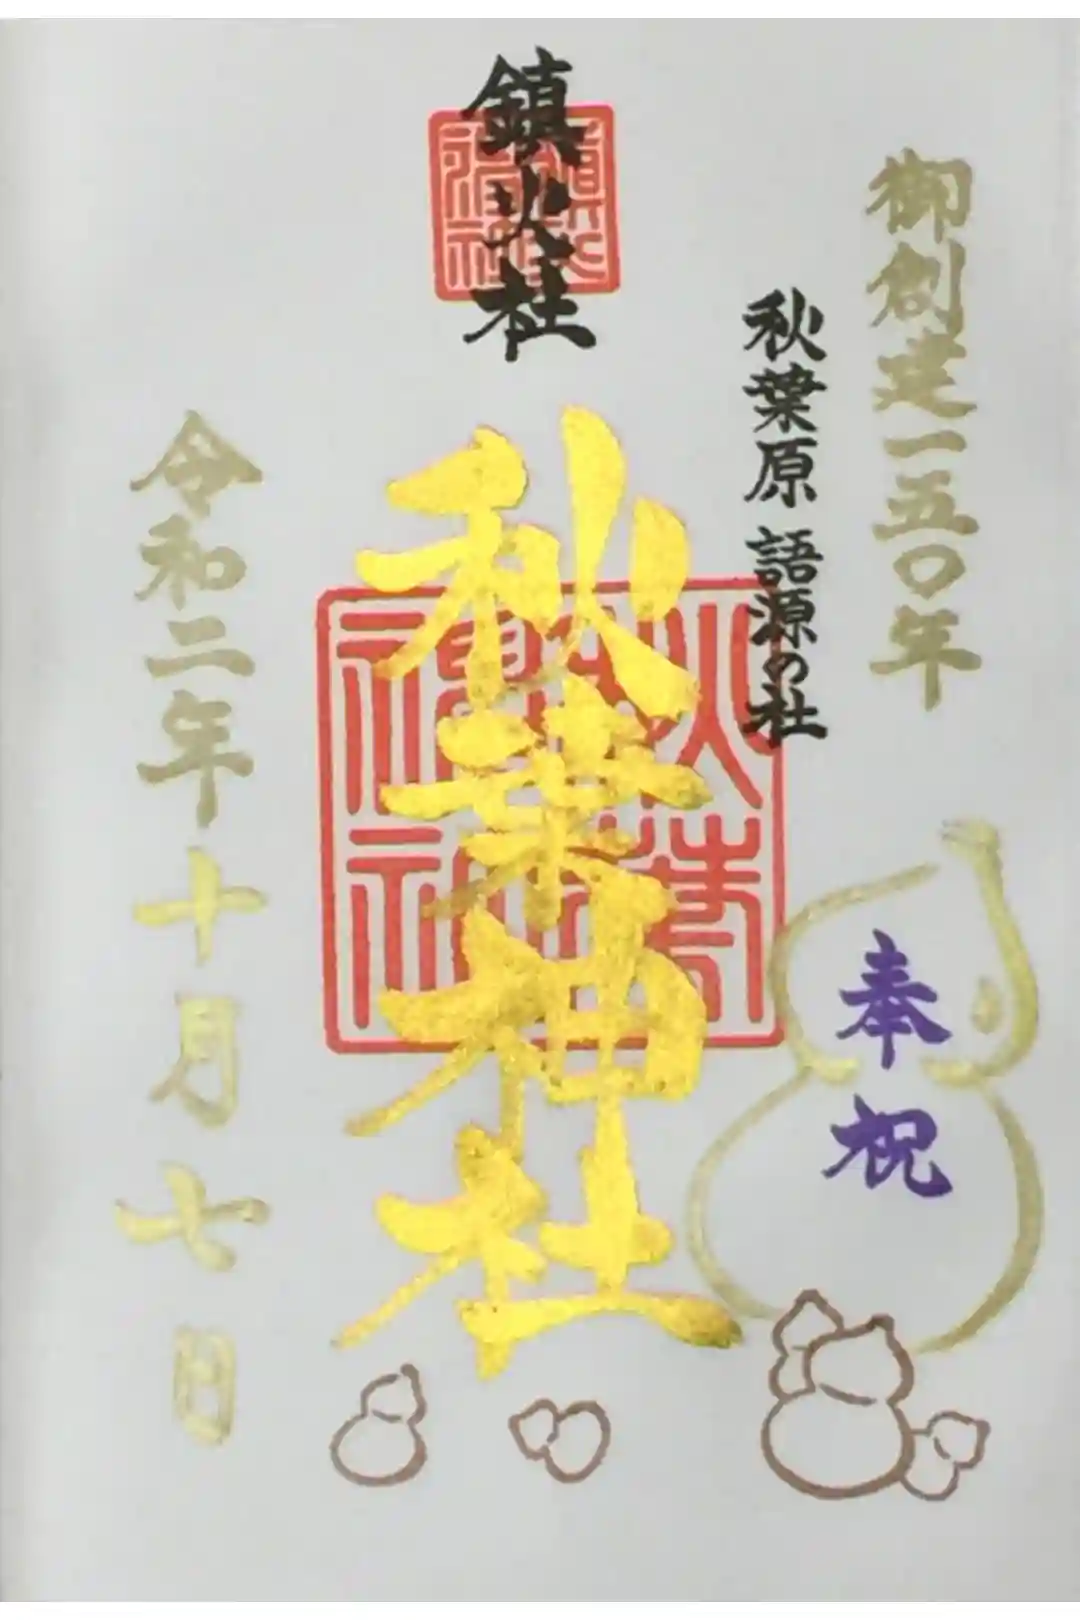 御創建一五〇年
奉祝
秋葉原 語源の社
鎮火社
秋葉神社
令和二年十月七日